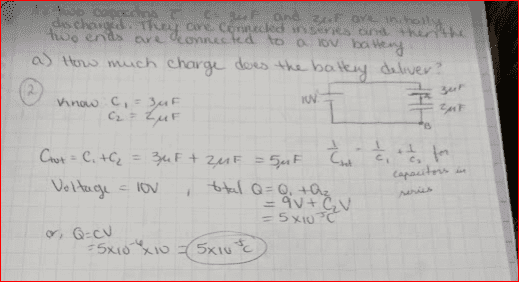 two capacitors C₁ 3μF and 2μF are initially
discharged. They are connected in series and then the
two ends are connected to a 10V battery.
a) How much charge does the battery deliver?
2
Know C₁ = 3μF
C₂ = 2μF
10V
3μF
2μF
B
Ctot = C₁ + C₂ = 3μF + 2μF = 5μF
1/Ctot = 1/C₁ + 1/C₂ for
capacitors in
series
Voltage = 10V , total Q = Q₁ + Q₂
= 9V + C₂V
= 5x10⁻⁵C
or, Q=CV
=5x10⁻⁶x10 = 5x10⁻⁵C